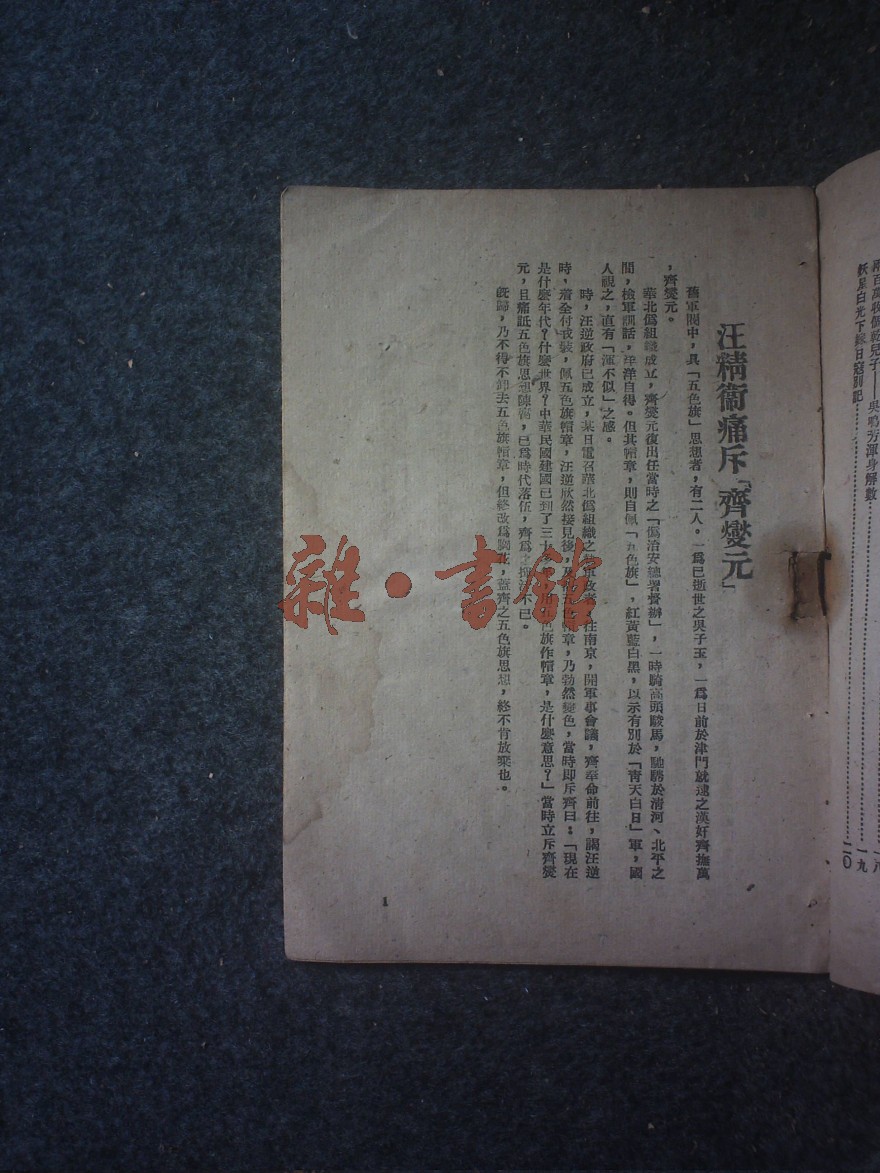 兒子——吳鳴芳渾身解數
妖星白光下嫁日寇別記
一八
一九
二〇
汪精衞痛斥「齊燮元」
舊軍閥中，具「五色旗」思想者，有二人。一爲已逝世之吳子玉，一爲日前於津門就逮之漢奸齊撫萬
，齊燮元。
華北僞組織成立，齊燮元復出任當時之「僞治安總署督辦」，一時騎高頭駿馬，馳騁於清河、北平之
間，檢軍訓話，洋洋自得。但其帽章，則自佩「五色旗」，紅黃藍白黑，以示有別於「靑天白日」軍，國
人視之，直有「渾不似」之感。
時，汪逆政府已成立，某日電召華北僞組織之 往南京，開軍事會議，齊奉命前往，謁汪逆
時，着全付戎裝，佩五色旗帽章，汪逆欣然接見後， 帽章，乃勃然變色，當時即斥齊曰：「現在
是什麼年代？什麼世界？中華民國建國已到了三十 色旗作帽章，是什麼意思？」當時立斥齊燮
元，且痛詆五色旗思想陳腐，已爲時代落伍，齊爲之 不已。
旣歸，乃不得不卸去五色旗帽章，但終改爲 ，蓋齊之五色旗思想，終不肯放棄也。
1
雜·書館